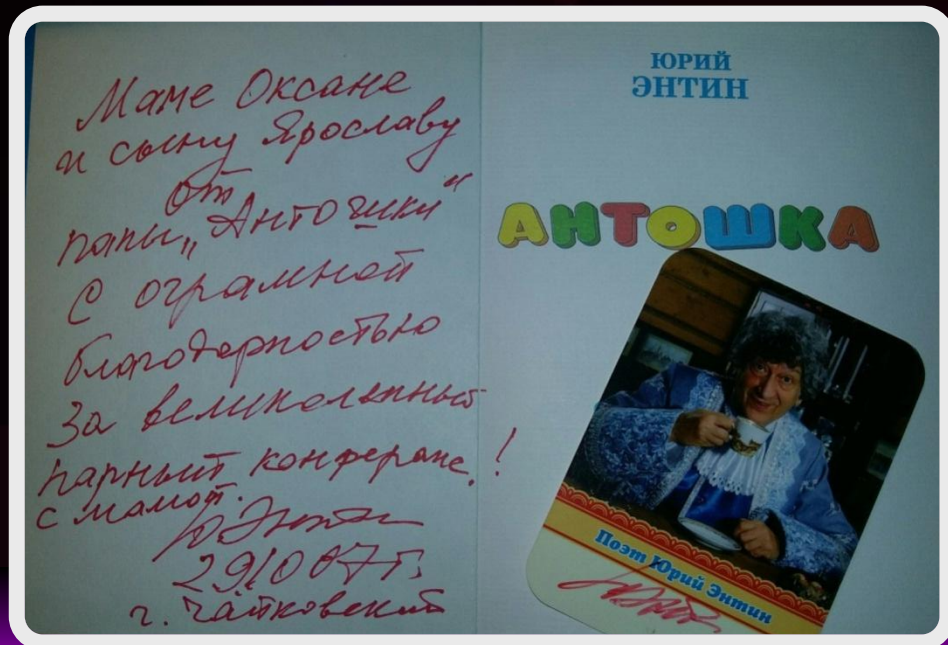 Маме Оксане
и сыну Ярославу
от
папы „Антошки"
с огромной
благодарностью
За великолепный
парный конферанс!
с мамой.
ЮЭнтин
29/10 07 г.
г. Чайковский
ЮРИЙ
ЭНТИН
АНТОШКА
Поэт Юрий Энтин